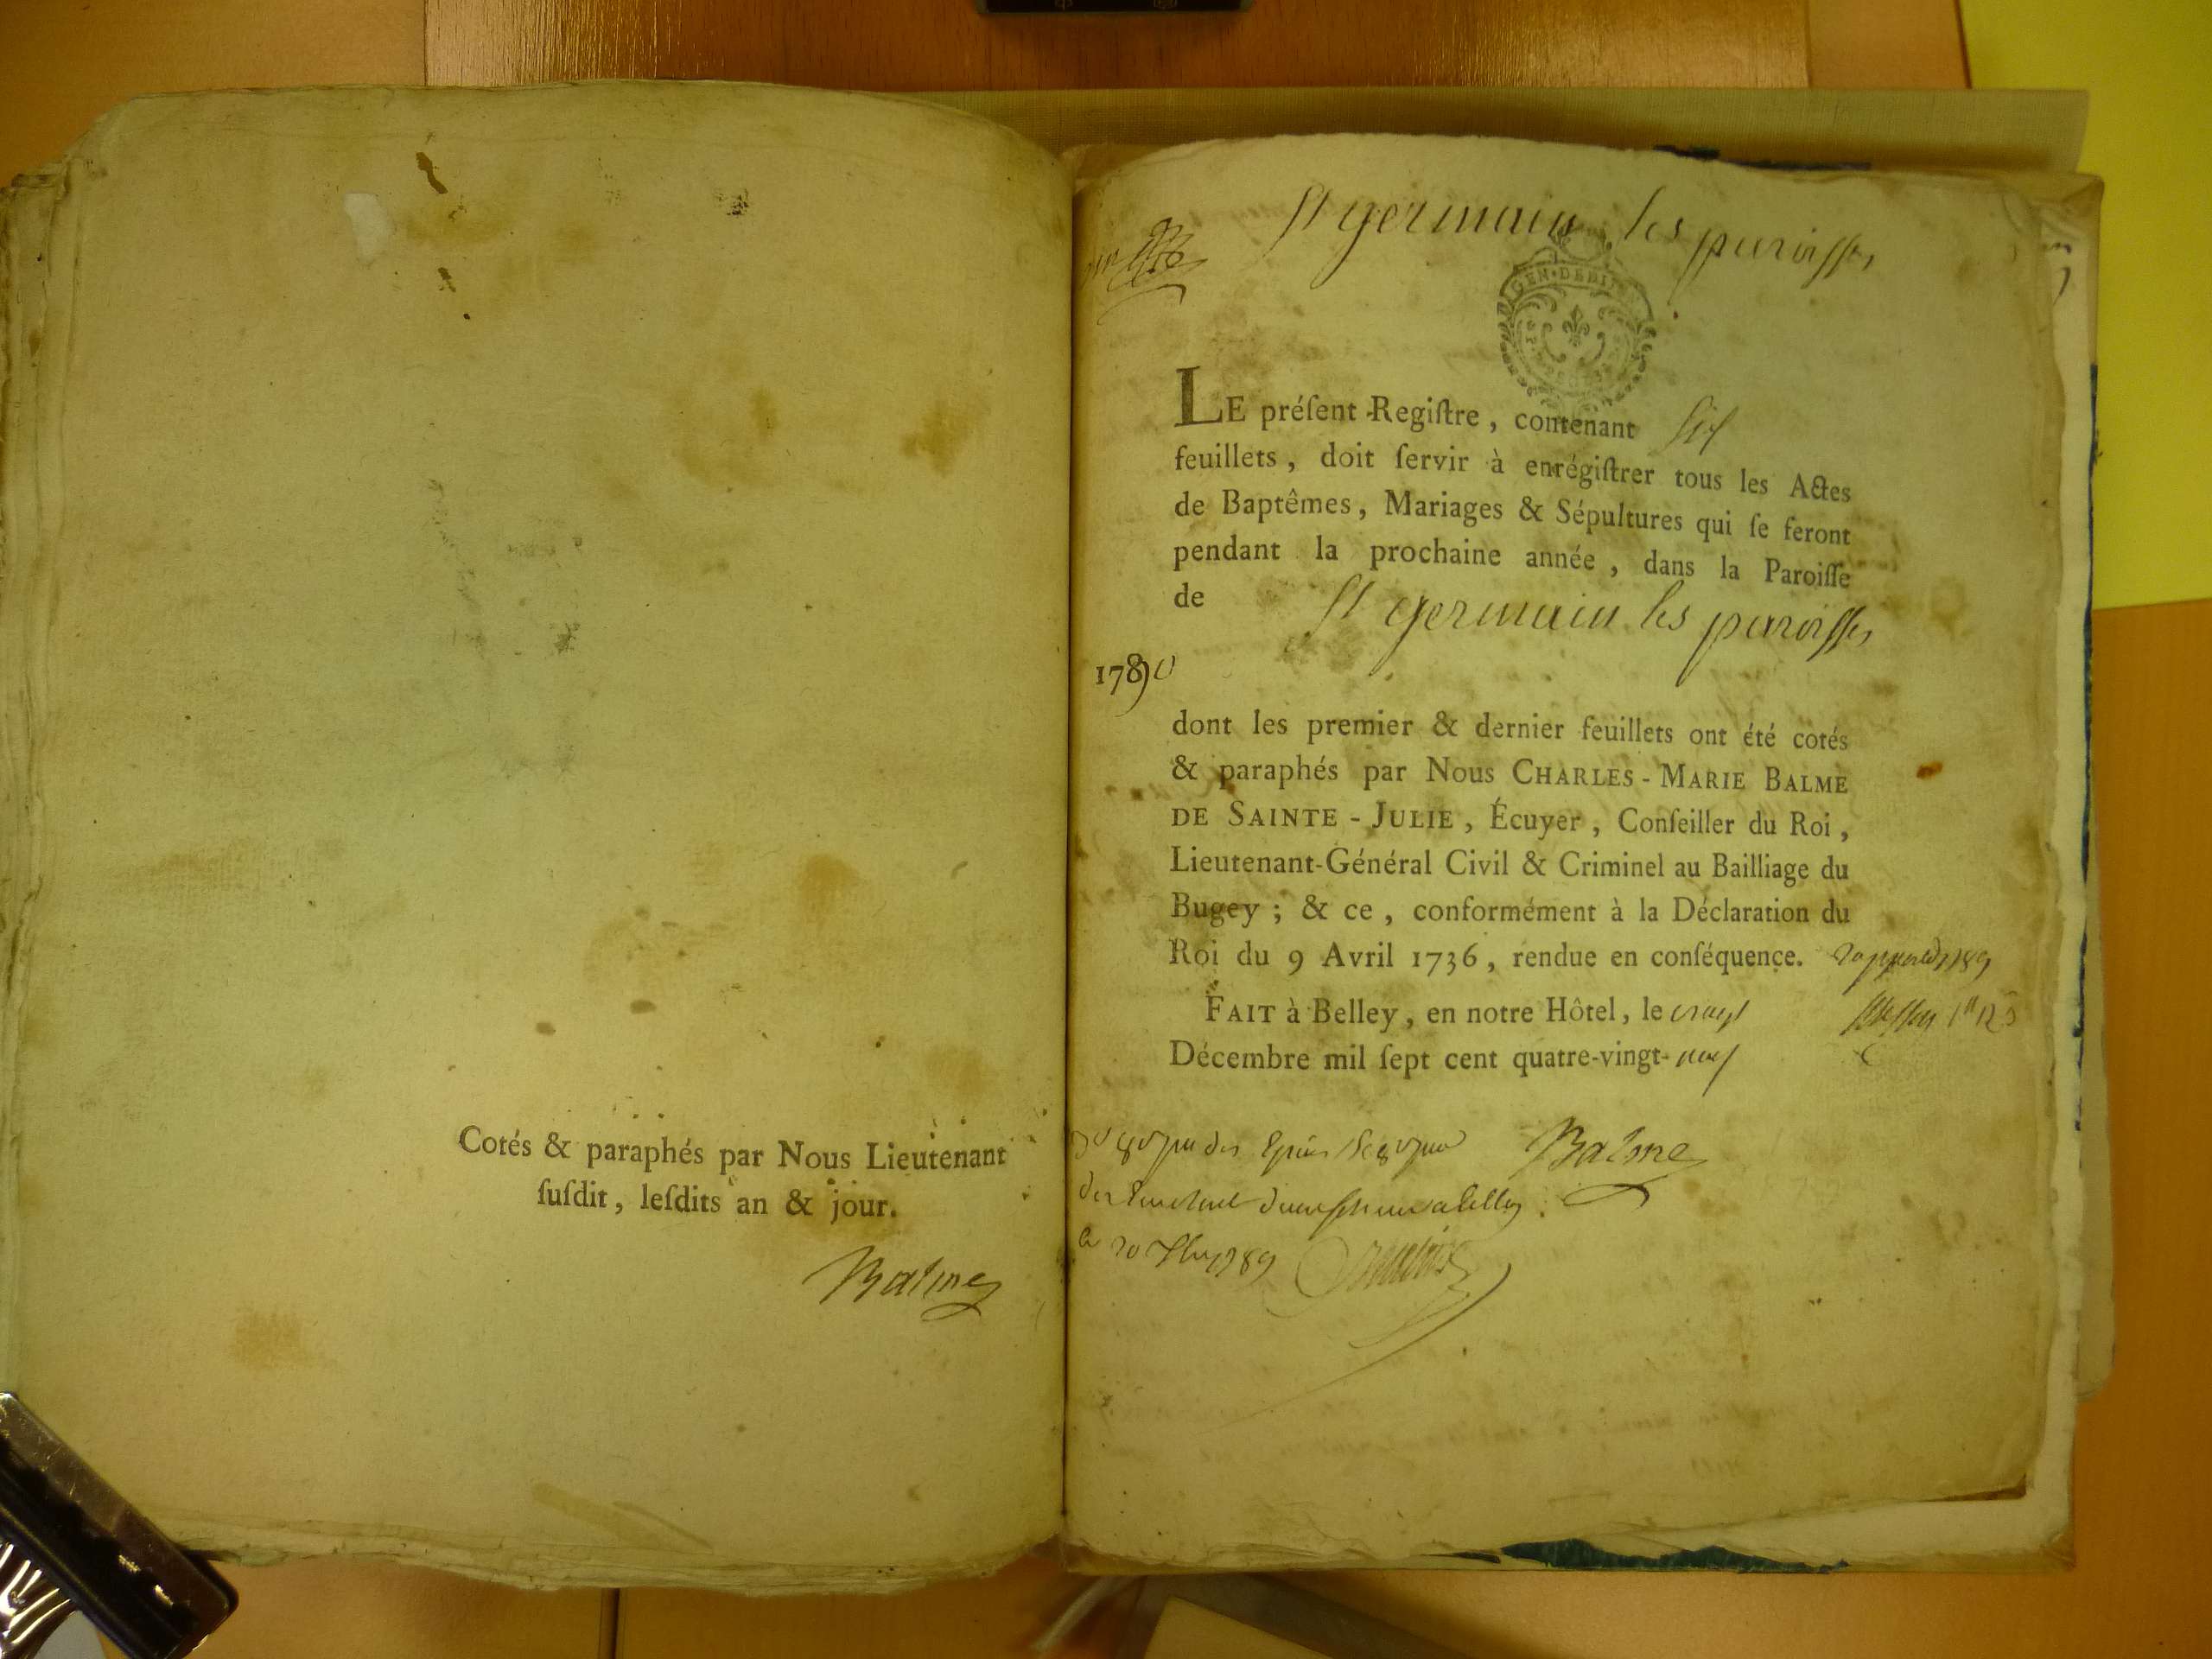 Cotés & paraphés par Nous Lieutenant
ſuſdit, leſdits an & jour.
Balme
St germain les paroisses
GEN·DEDIJ
LE préſent Regiſtre, contenant Six
feuillets, doit ſervir à enrégiſtrer tous les Actes
de Baptêmes, Mariages & Sépultures qui ſe feront
pendant la prochaine année, dans la Paroiſſe
de St germain les paroisses
1790
dont les premier & dernier feuillets ont été cotés
& paraphés par Nous CHARLES-MARIE BALME
DE SAINTE-JULIE, Écuyer, Conſeiller du Roi,
Lieutenant-Général Civil & Criminel au Bailliage du
Bugey; & ce, conformément à la Déclaration du
Roi du 9 Avril 1736, rendue en conſéquence.
FAIT à Belley, en notre Hôtel, le vingt
Décembre mil ſept cent quatre-vingt-neuf
Balme